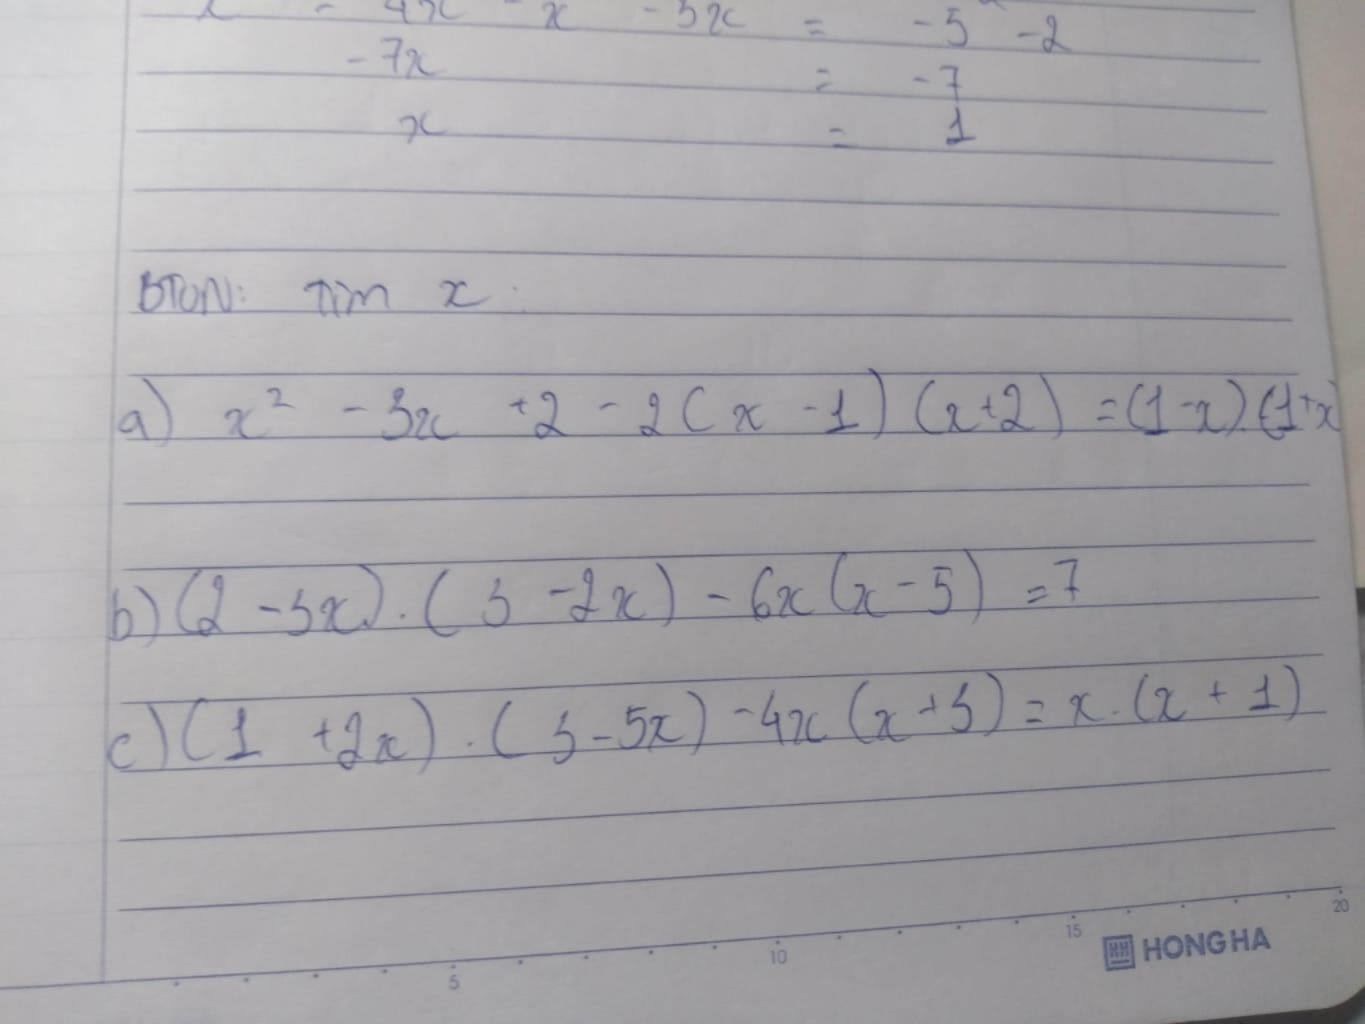 - 4x - x - 3x = -5 -2
-7x = -7
x = 1
BTVN: Tìm x.
a) x² - 3x + 2 - 2(x - 1)(x+2) = (1-x).(1+x)
b) (2 - 3x).(3 - 2x) - 6x(x - 5) = 7
c) (1 + 2x).(3 - 5x) - 4x(x+3) = x.(x + 1)
5 10 15 20
HONG HA